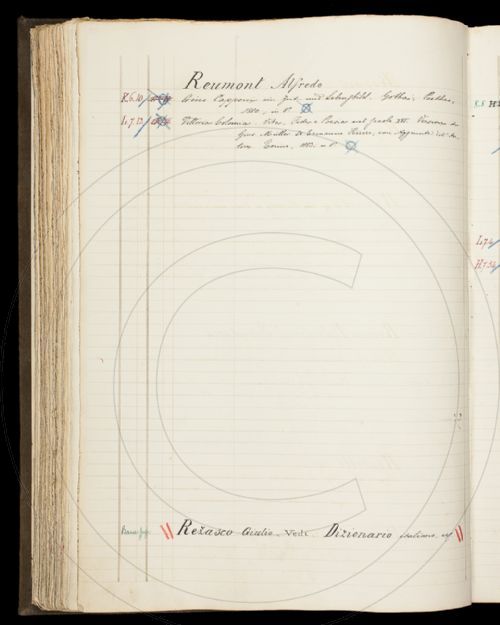 Reumont Alfredo
K.6.10 Gino Capponi ein Zeit und Lebensbild. Gotha, Perthes,
1880, in 8°
L.7.12 Vittoria Colonna. Vita, Fede e Poesia nel secolo XVI. Versione di
Gius. Müller ed Ermanno Ferrero, con Aggiunte
Torino, 1883. in 8°
L.7.4
H.7.
Rezasco Giulio. Vedi. Dizionario italiano